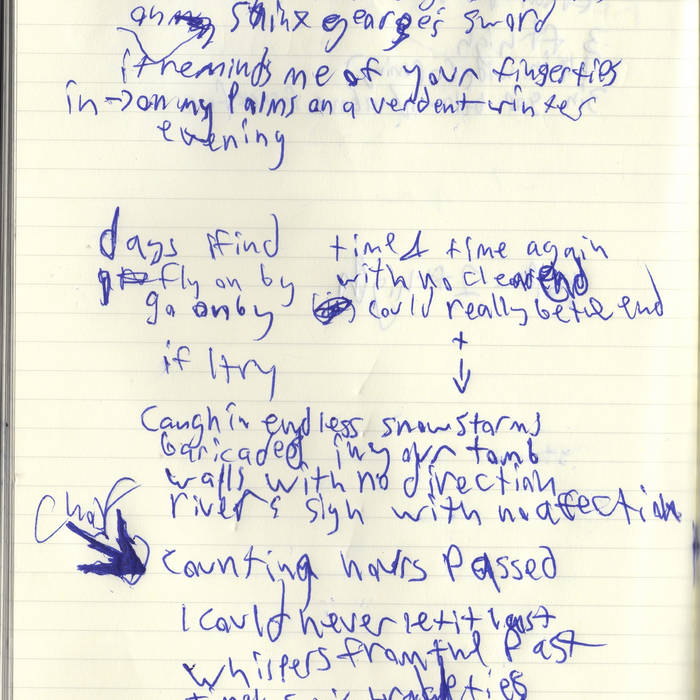 on my sphinx gearge's sword
it reminds me of your fingerties
in → on my palms on a verdent winter
evening
days i find
fly on by
go on by
if I try
time & time again
with no clear end
could really be the end
+
↓
Caugh in endless snowstorms
baricaded in your tomb
walls with no direction
rivers sigh with no affection
counting hours passed
I could never let it last
whispers from the past